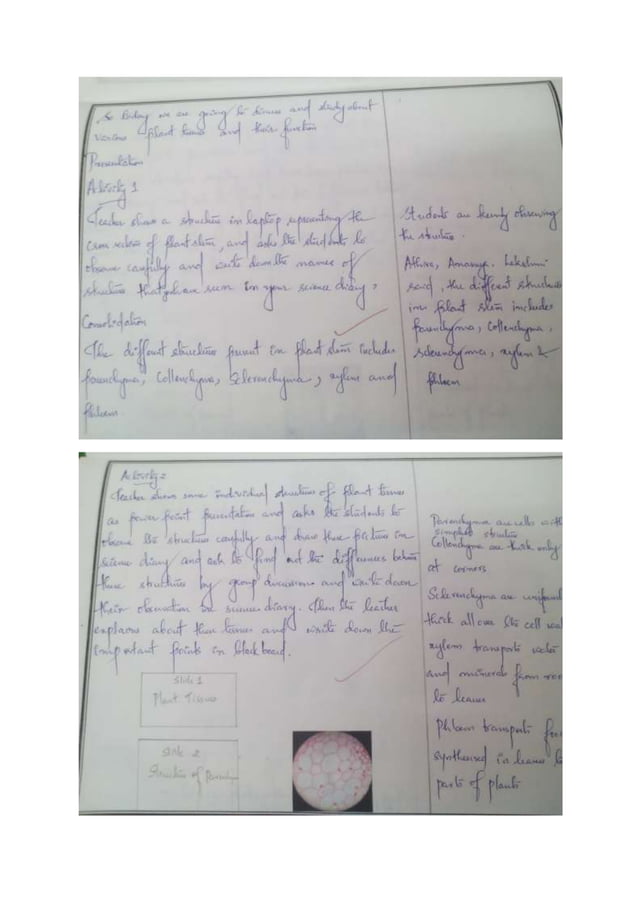 So today we are going to discuss and study about
various plant tissues and their function
Presentation
Activity 1
Teacher shows a structure in laptop representing the
cross section of plant stem, and asks the students to
observe carefully and write down the names of
structure that you have seen in your science diary.
Consolidation
The different structures present in plant stem includes
parenchyma, Collenchyma, Sclerenchyma, xylem and
phloem.
Students are keenly observing
the structure.
Athira, Ananya, Lekshmi
said, the different structures
in plant stem includes
parenchyma, collenchyma,
sclerenchyma, xylem &
phloem
Activity 2
Teacher shows some individual structures of plant tissues
as power point presentation and asks the students to
observe the structure carefully and draw these pictures in
science diary and ask to find out the differences between
these structures by group discussion and write down
their observation in science diary. Then the teacher
explains about these tissues and write down the
important points in black board.
Slide 1
Plant Tissues
Slide 2
Structure of Parenchy
Parenchyma are cells with
simplest structure
Collenchyma are thick only
at corners
Sclerenchyma are uniform
thick all over the cell wal
xylem transports water
and minerals from roo
to leaves
Phloem transports foo
synthesised in leaves to
parts of plants